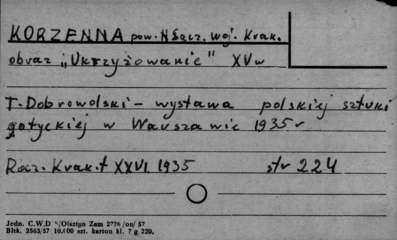 KORZENNA pow. N Sącz. Woj. Krak.
obraz „Ukrzyżowanie" XV w
T. Dobrowolski - wystawa polskiej sztuki
gotyckiej w Warszawie 1935 r
Rocz. Krak. t XXVI. 1935 str 224
Jedn. C.W.D /Olsztyn Zam 2776 /on/ 57
Blhk. 2563/57 10.000 szt. karton kl. 7 g 220.